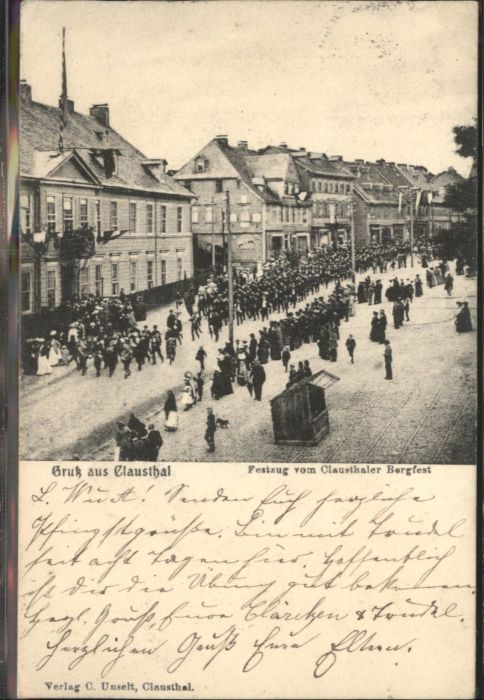 Gruß aus Clausthal
Festzug vom Clausthaler Bergfest
L. W. u. A! Senden Euch herzliche
Pfingstgrüße. Bin mit Trudel
seit acht Tagen hier. Hoffentlich
ist dir die Übung gut bekommen.
Herzl. Gruß, Eure Clärchen & Trudel.
Herzlichen Gruß Eure Eltern.
Verlag C. Unselt, Clausthal.